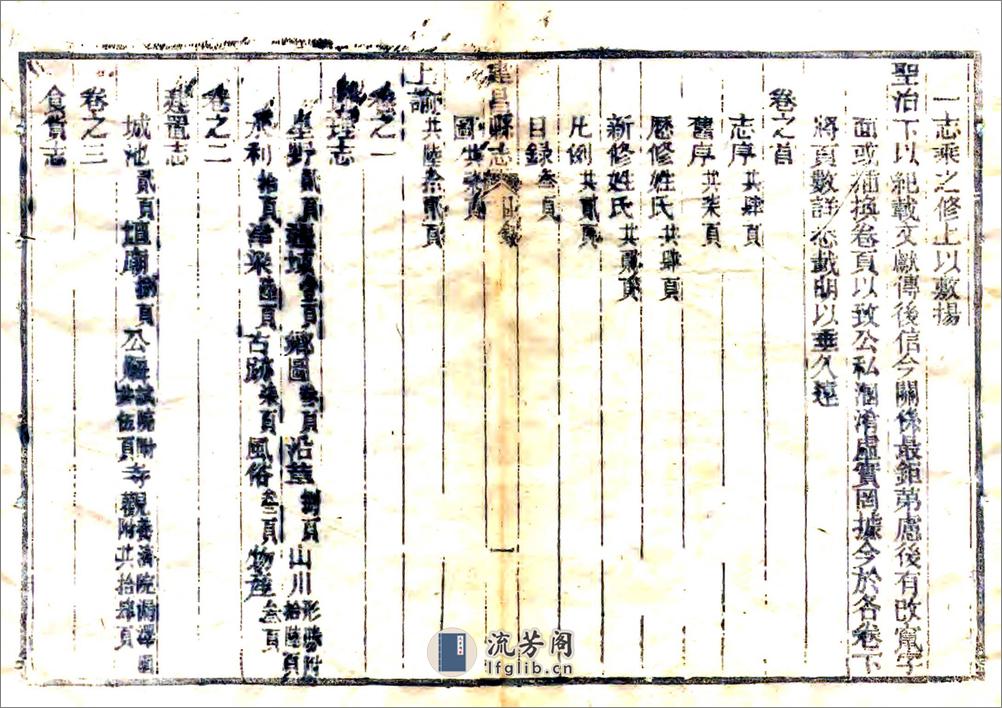 一志乘之修上以敷揚
聖治下以紀載文獻傳後信今關係最鉅第慮後有改竄字
面或補換卷頁以致公私溷淆虛實罔據今於各卷下
將頁數詳悉載明以垂久遠
卷之首
志序共肆頁
舊序共柒頁
歷修姓氏共肆頁
新修姓氏共貳頁
凡例共貳頁
目録叁頁
建昌縣志
目録
一
圖共柒頁
上諭共陸拾貳頁
卷之一
地理志
星野貳頁 疆域壹頁 鄉圖叁頁 沿革捌頁 山川形勝附拾陸頁
水利拾頁 津梁陸頁 古跡柒頁 風俗叁頁 物產叁頁
卷之二
建置志
城池貳頁 壇廟捌頁 公廨試院附共伍頁 寺觀養濟院漏澤園附共拾肆頁
卷之三
食貨志
流芳阁
lfglib.cn